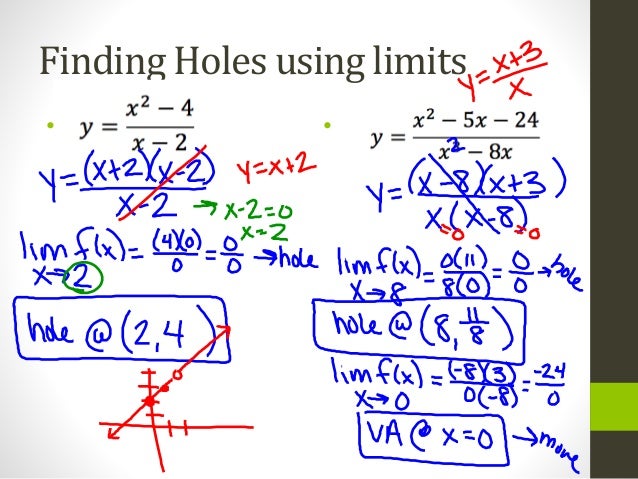 Finding Holes using limits
y = (x+3)/x
• y = (x² − 4)/(x − 2)
y = (x+2)(x-2)/(x-2) y = x+2
→ x-2=0
x=2
lim x→2 f(x) = (4)(0)/0 = 0/0 → hole
hole @ (2,4)
• y = (x² − 5x − 24)/(x² − 8x)
y = (x-8)(x+3)/x(x-8)
=0 =0
lim x→8 f(x) = 0(11)/8(0) = 0/0 → hole
hole @ (8, 11/8)
lim x→0 f(x) = (-8)(3)/0(-8) = -24/0
VA @ x=0 → move